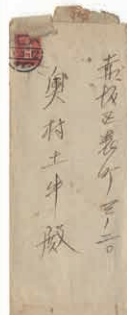 赤坂区表町三ノ二〇
奥村土牛殿